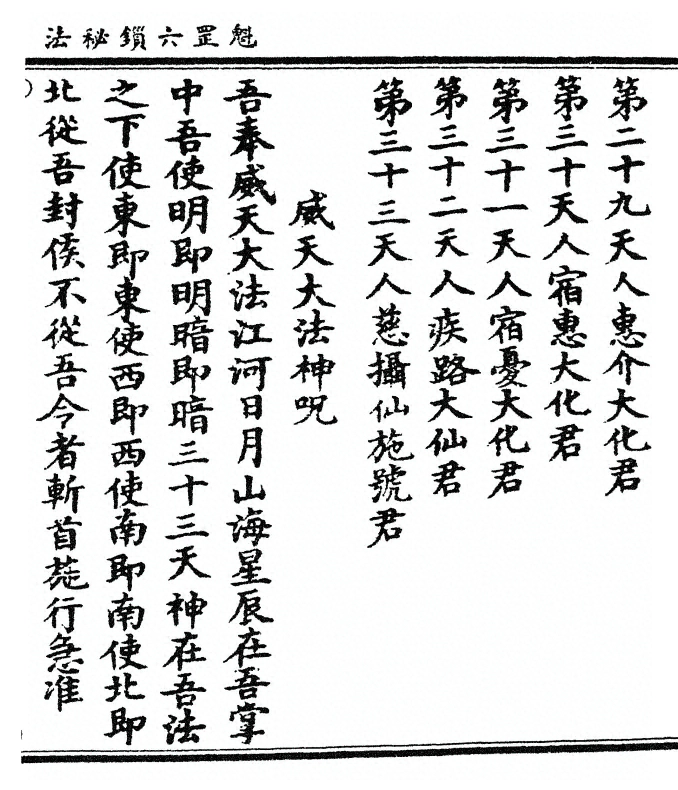 魁罡六鎖秘法
第二十九天人惠介大化君
第三十天人宿惠大化君
第三十一天人宿憂大化君
第三十二天人疾路大仙君
第三十三天人慈攝仙施號君
威天大法神呪
吾奉威天大法江河日月山海星辰在吾掌
中吾使明即明暗即暗三十三天神在吾法
之下使東即東使西即西使南即南使北即
北從吾封侯不從吾令者斬首施行急准